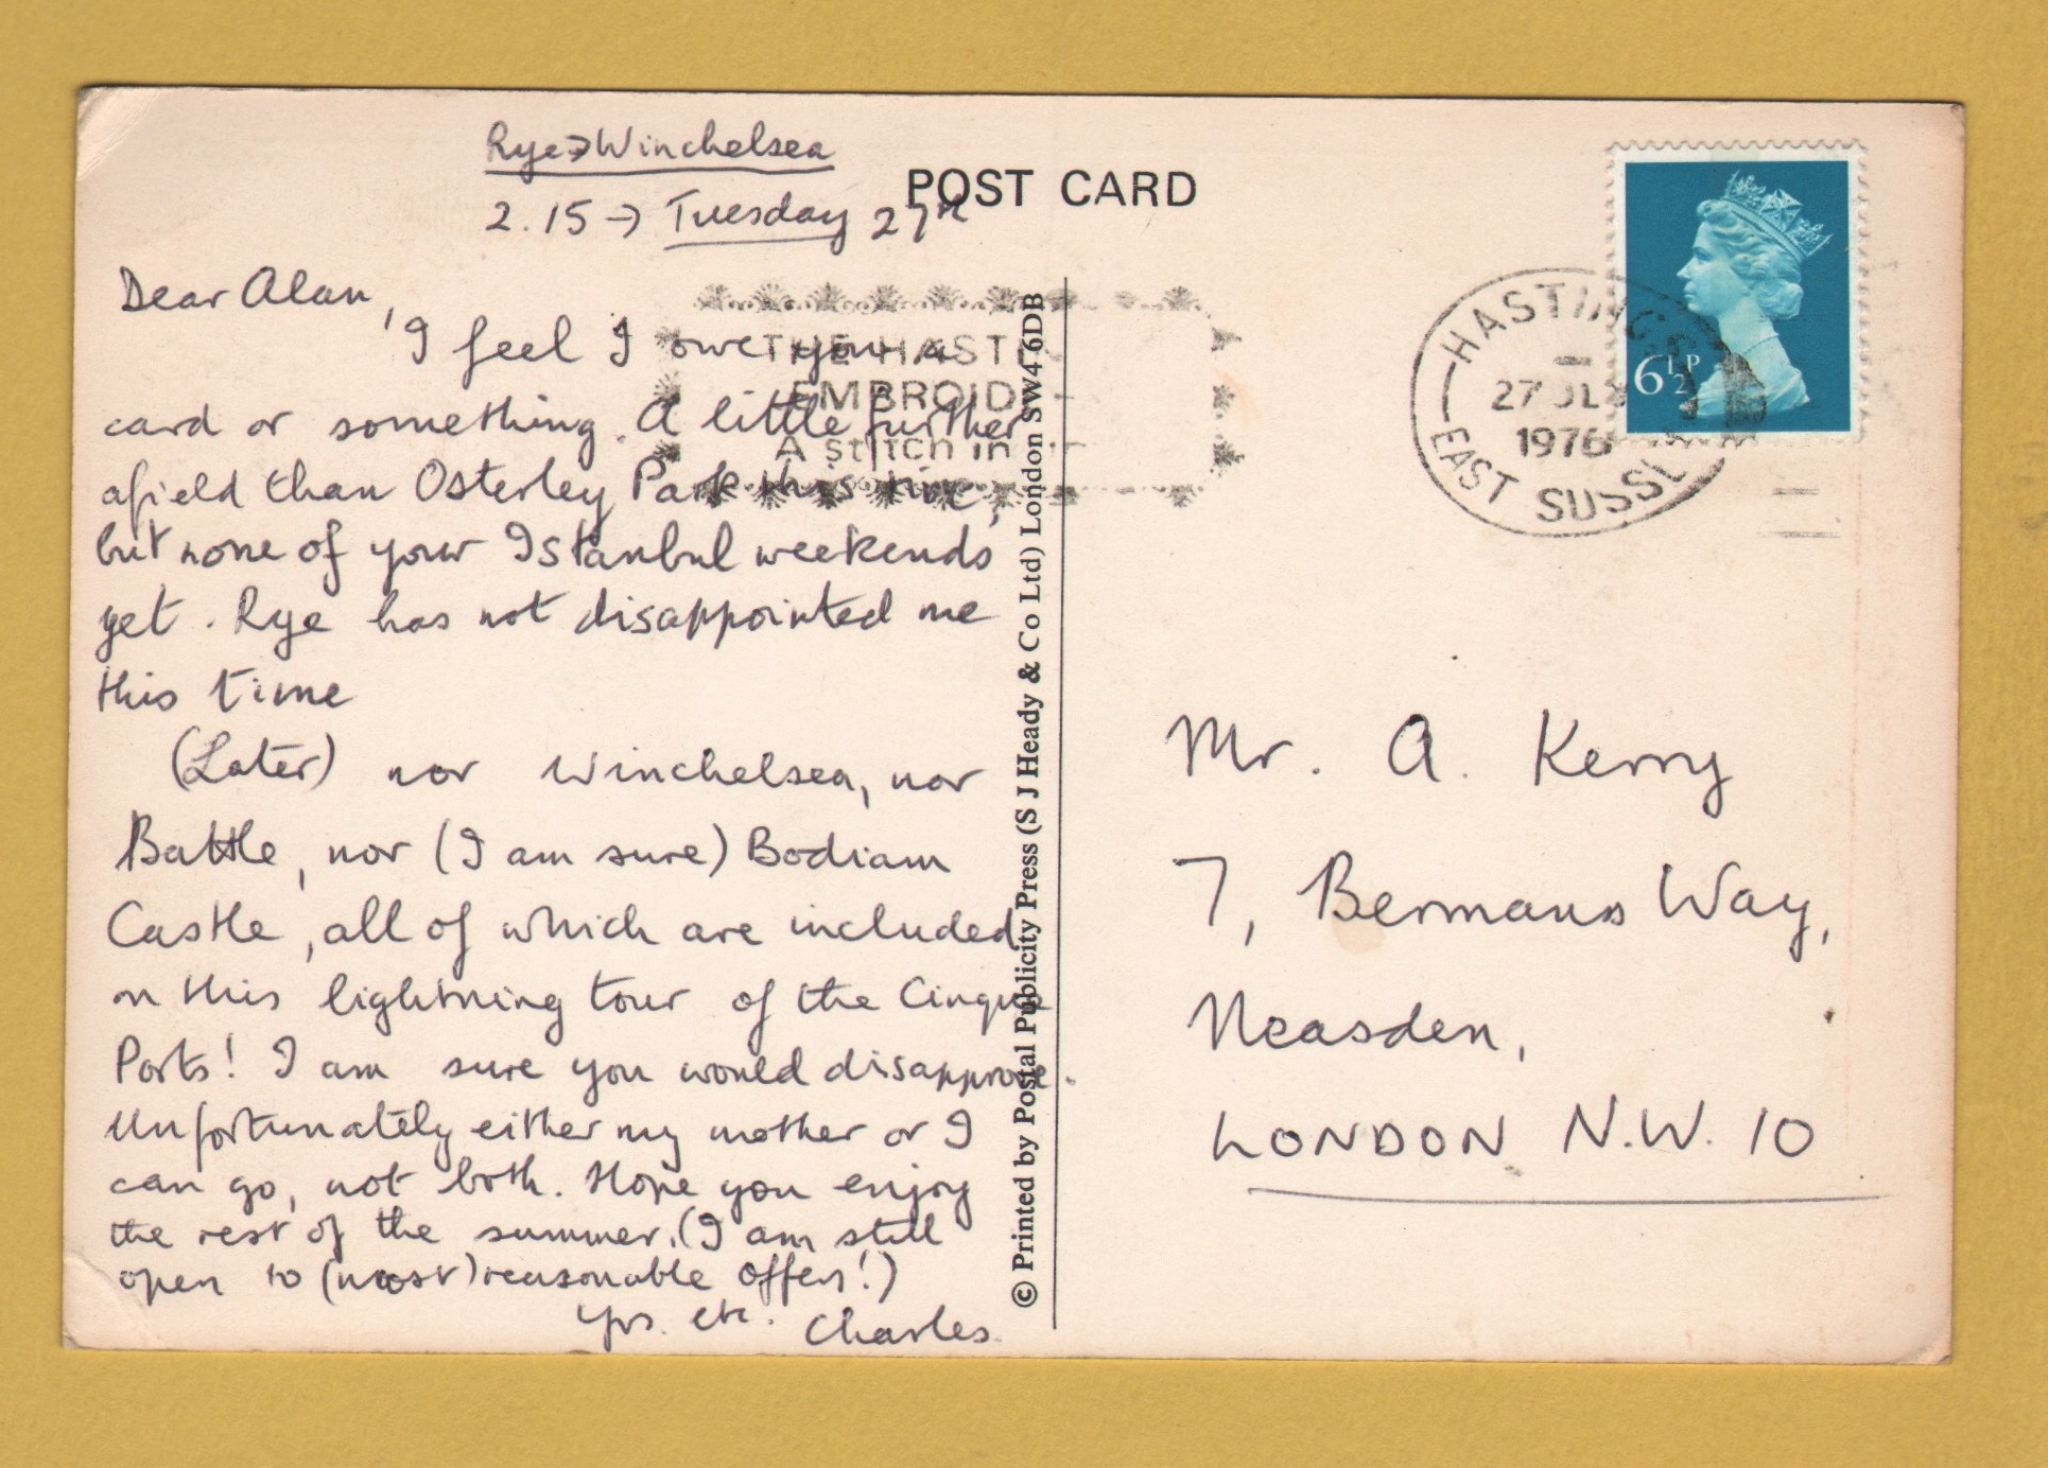 Rye→Winchelsea
2.15→ Tuesday 27th
POST CARD
Dear Alan,
I feel I owe you a
card or something. A little further
afield than Osterley Park this time,
but none of your Istanbul weekends
yet. Rye has not disappointed me
this time
(Later) nor Winchelsea, nor
Battle, nor (I am sure) Bodiam
Castle, all of which are included
on this lightning tour of the Cinque
Ports! I am sure you would disapprove.
Unfortunately either my mother or I
can go, not both. Hope you enjoy
the rest of the summer. (I am still
open to (most) reasonable offers!)
Yrs. etc. Charles.
THE HASTI
EMBROID
A stitch in
© Printed by Postal Publicity Press (S J Heady & Co Ltd) London SW4 6DB
HASTINGS
27 JL
1976
EAST SUSSE
6½P
Mr. A. Kerry
7, Bermans Way,
Neasden,
LONDON N.W. 10